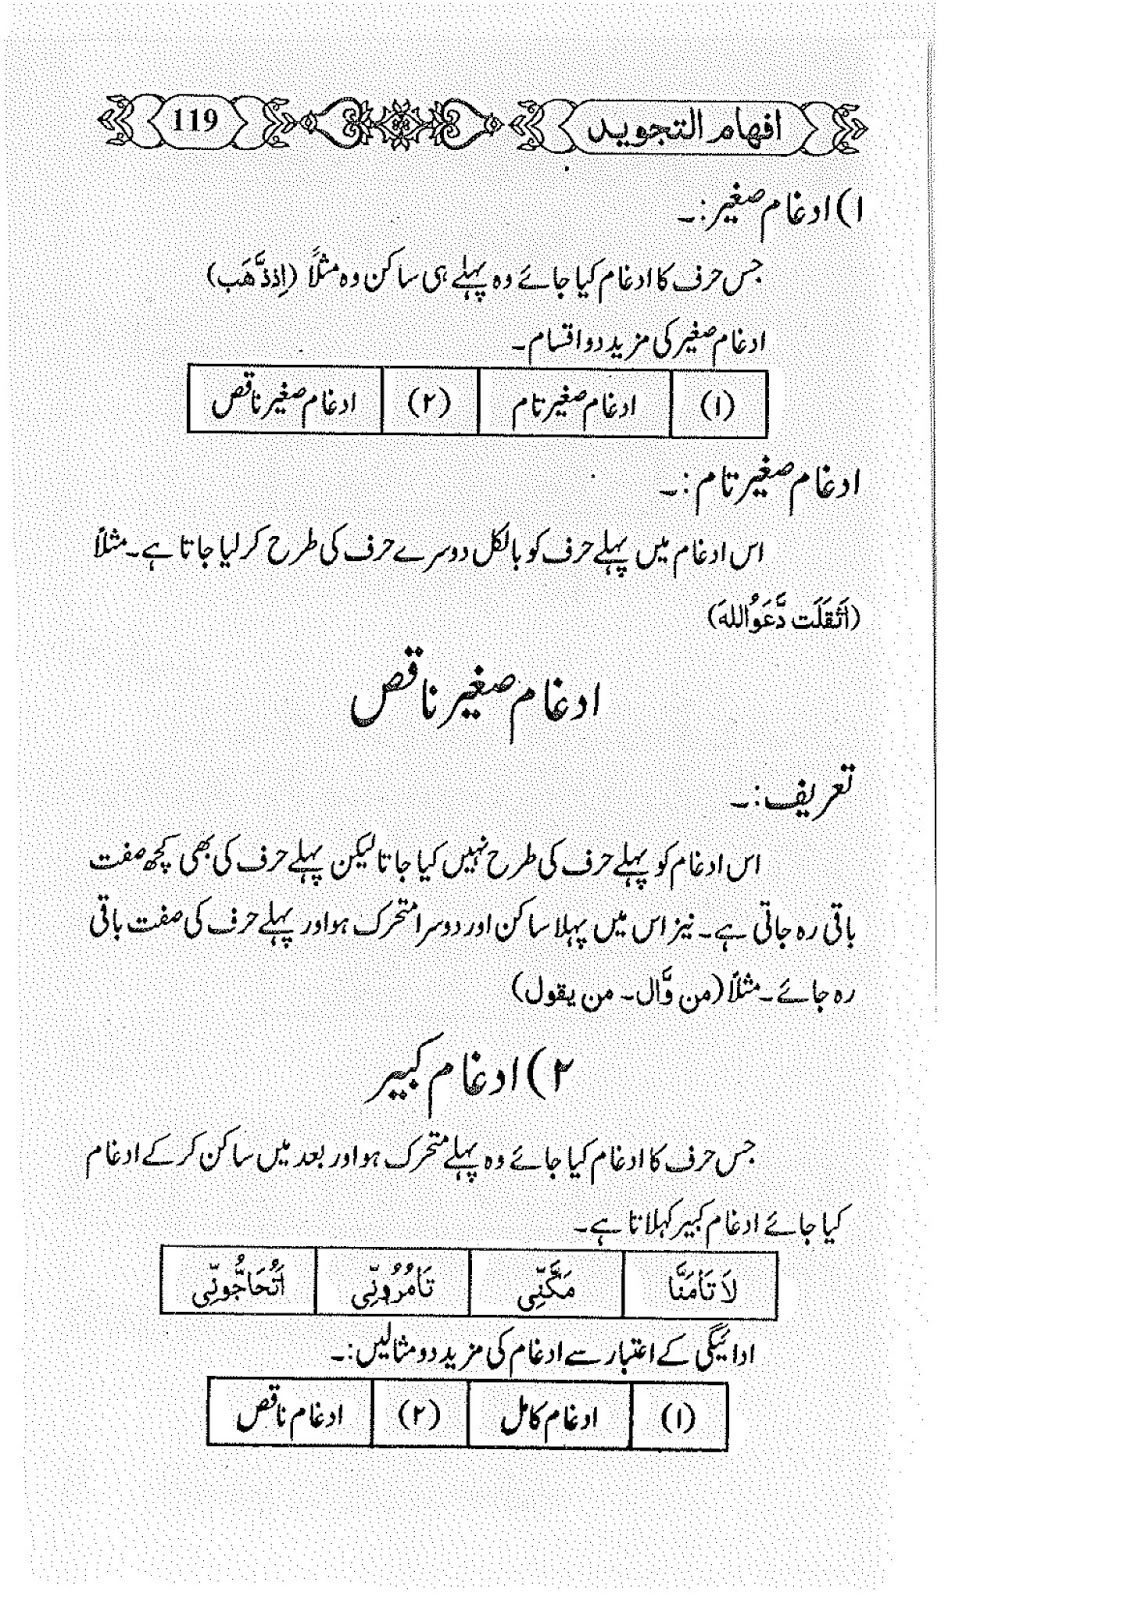 افہام التجوید 119
۱) ادغام صغیر:۔
جس حرف کا ادغام کیا جائے وہ پہلے ہی ساکن وہ مثلاً (اِذذَّهَب)
ادغام صغیر کی مزید دو اقسام۔
(۱) ادغام صغیر تام (۲) ادغام صغیر ناقص
ادغام صغیر تام:۔
اس ادغام میں پہلے حرف کو بالکل دوسرے حرف کی طرح کر لیا جاتا ہے۔ مثلاً
(اَثقَلَت دَّعَوُاللهَ)
ادغام صغیر ناقص
تعریف:۔
اس ادغام کو پہلے حرف کی طرح نہیں کیا جاتا لیکن پہلے حرف کی بھی کچھ صفت
باقی رہ جاتی ہے۔ نیز اس میں پہلا ساکن اور دوسرا متحرک ہو اور پہلے حرف کی صفت باقی
رہ جائے۔ مثلاً (من وَّال۔ من یقول)
۲) ادغام کبیر
جس حرف کا ادغام کیا جائے وہ پہلے متحرک ہو اور بعد میں ساکن کر کے ادغام
کیا جائے ادغام کبیر کہلاتا ہے۔
لَا تَامَنَّا مَكَّنِّی تَامُرُونِّی اَتُحَاجُّونِّی
ادائیگی کے اعتبار سے ادغام کی مزید دو مثالیں:۔
(۱) ادغام کامل (۲) ادغام ناقص